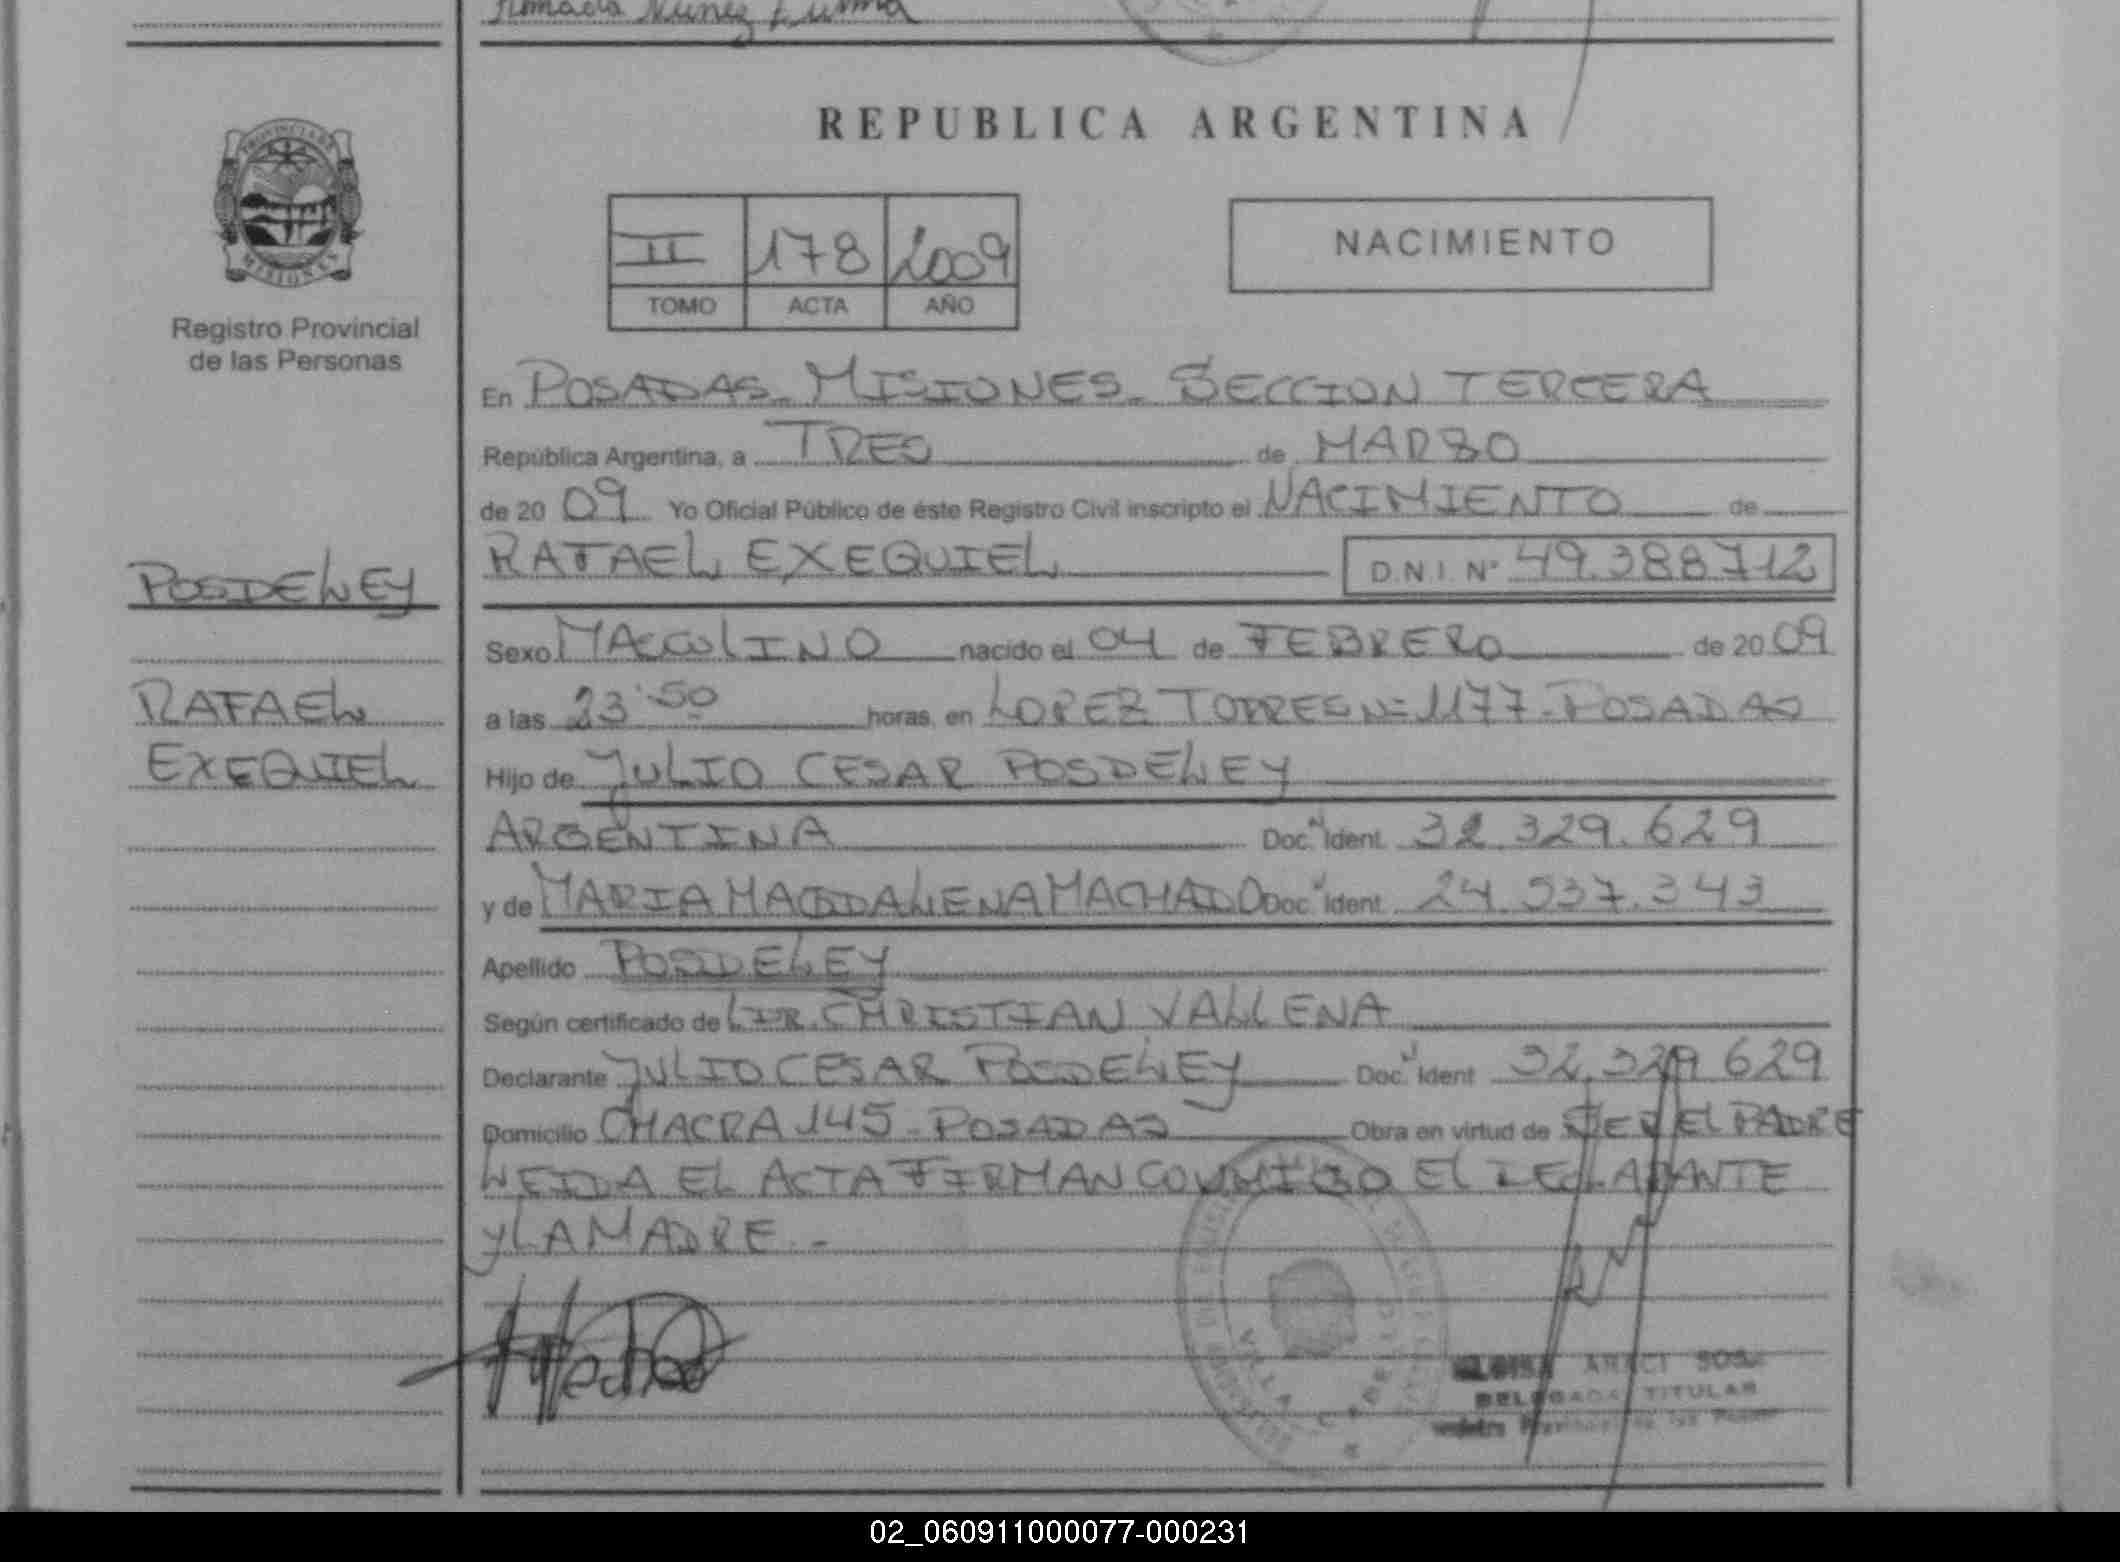 Amado Nuñez
REPUBLICA ARGENTINA
PROVINCIA DE
MISIONES
Registro Provincial
de las Personas
II 178 2009
TOMO ACTA AÑO
NACIMIENTO
En POSADAS - MISIONES - SECCION TERCERA
República Argentina, a TRES de MARZO
de 20 09 Yo Oficial Público de éste Registro Civil inscripto el NACIMIENTO de
RAFAEL EXEQUIEL D.N.I. Nº 49.388.712
POSDELEY
RAFAEL
EXEQUIEL
Sexo MASCULINO nacido el 04 de FEBRERO de 20 09
a las 23:50 horas, en LOPEZ TORRES Nº 1177 - POSADAS
Hijo de JULIO CESAR POSDELEY
ARGENTINA Doc. N Ident. 32.329.629
y de MARIA MAGDALENA MACHADO Doc. N Ident. 24.537.343
Apellido POSDELEY
Según certificado de CHRISTIAN VALLENA
Declarante JULIO CESAR POSDELEY Doc. N Ident 32.329.629
Domicilio CHACRA 145 - POSADAS Obra en virtud de SER EL PADRE
LEIDA EL ACTA FIRMAN CONMIGO EL DECLARANTE
Y LA MADRE. -
VILLA CABELLO
ARACI SOSA
DELEGADA TITULAR
02_060911000077-000231